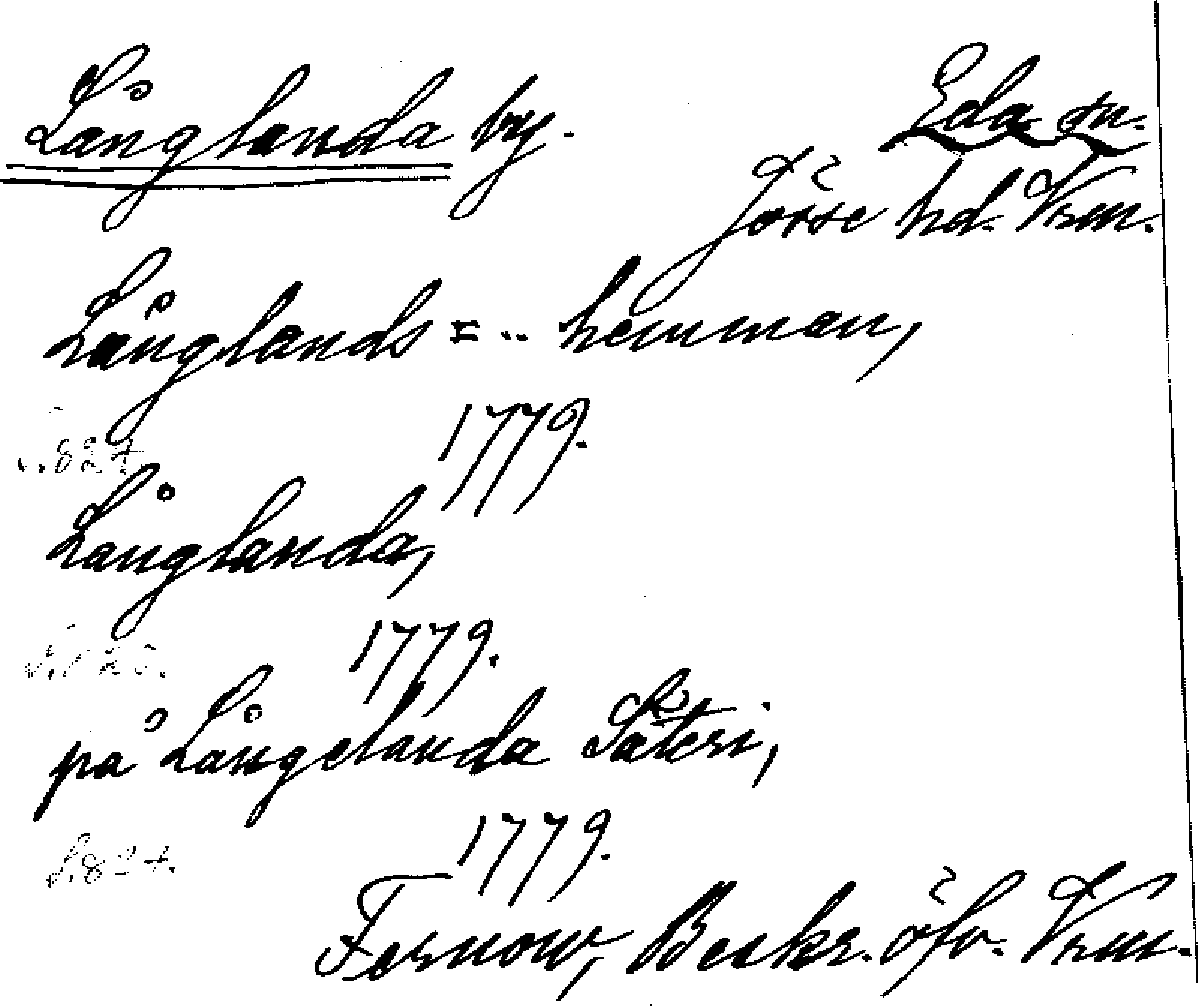 Långlanda by.
Eda sn.
Jösse hd. Vrm.
Långlands = .. hemman,
1779.
s. 827.
Långlanda,
1779.
på Långelanda Säteri,
1779.
s. 827.
Fernow, Beskr. öfv. Vrm.